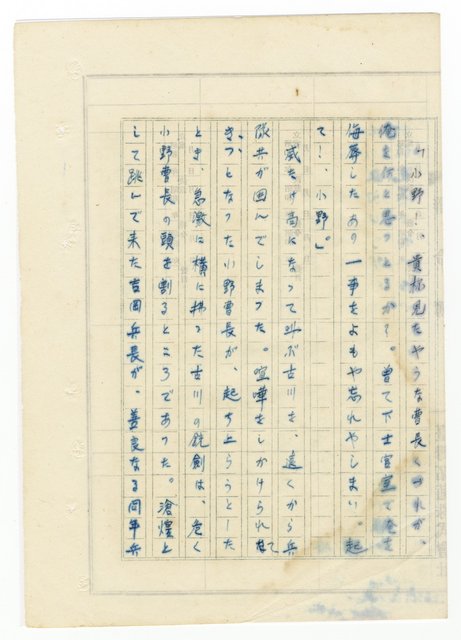 「小野！。貴様見たやうな曹長くづれが、
俺を何と思つとるか？。曽て下士官室で俺を
侮辱したあの一事をよもや忘れやしまい。起
て！、小野。」
威たけ高になつて叫ぶ古川を、遠くから兵
隊共が囲んでしまつた。喧嘩をしかけられて
きつとなつた小野曹長が、起ち上らうとした
とき、急激に横に払つた古川の銃剣は、危く
小野曹長の頭を割るところであつた。滄惶と
して跳んで来た吉岡兵長が、善良なる同年兵